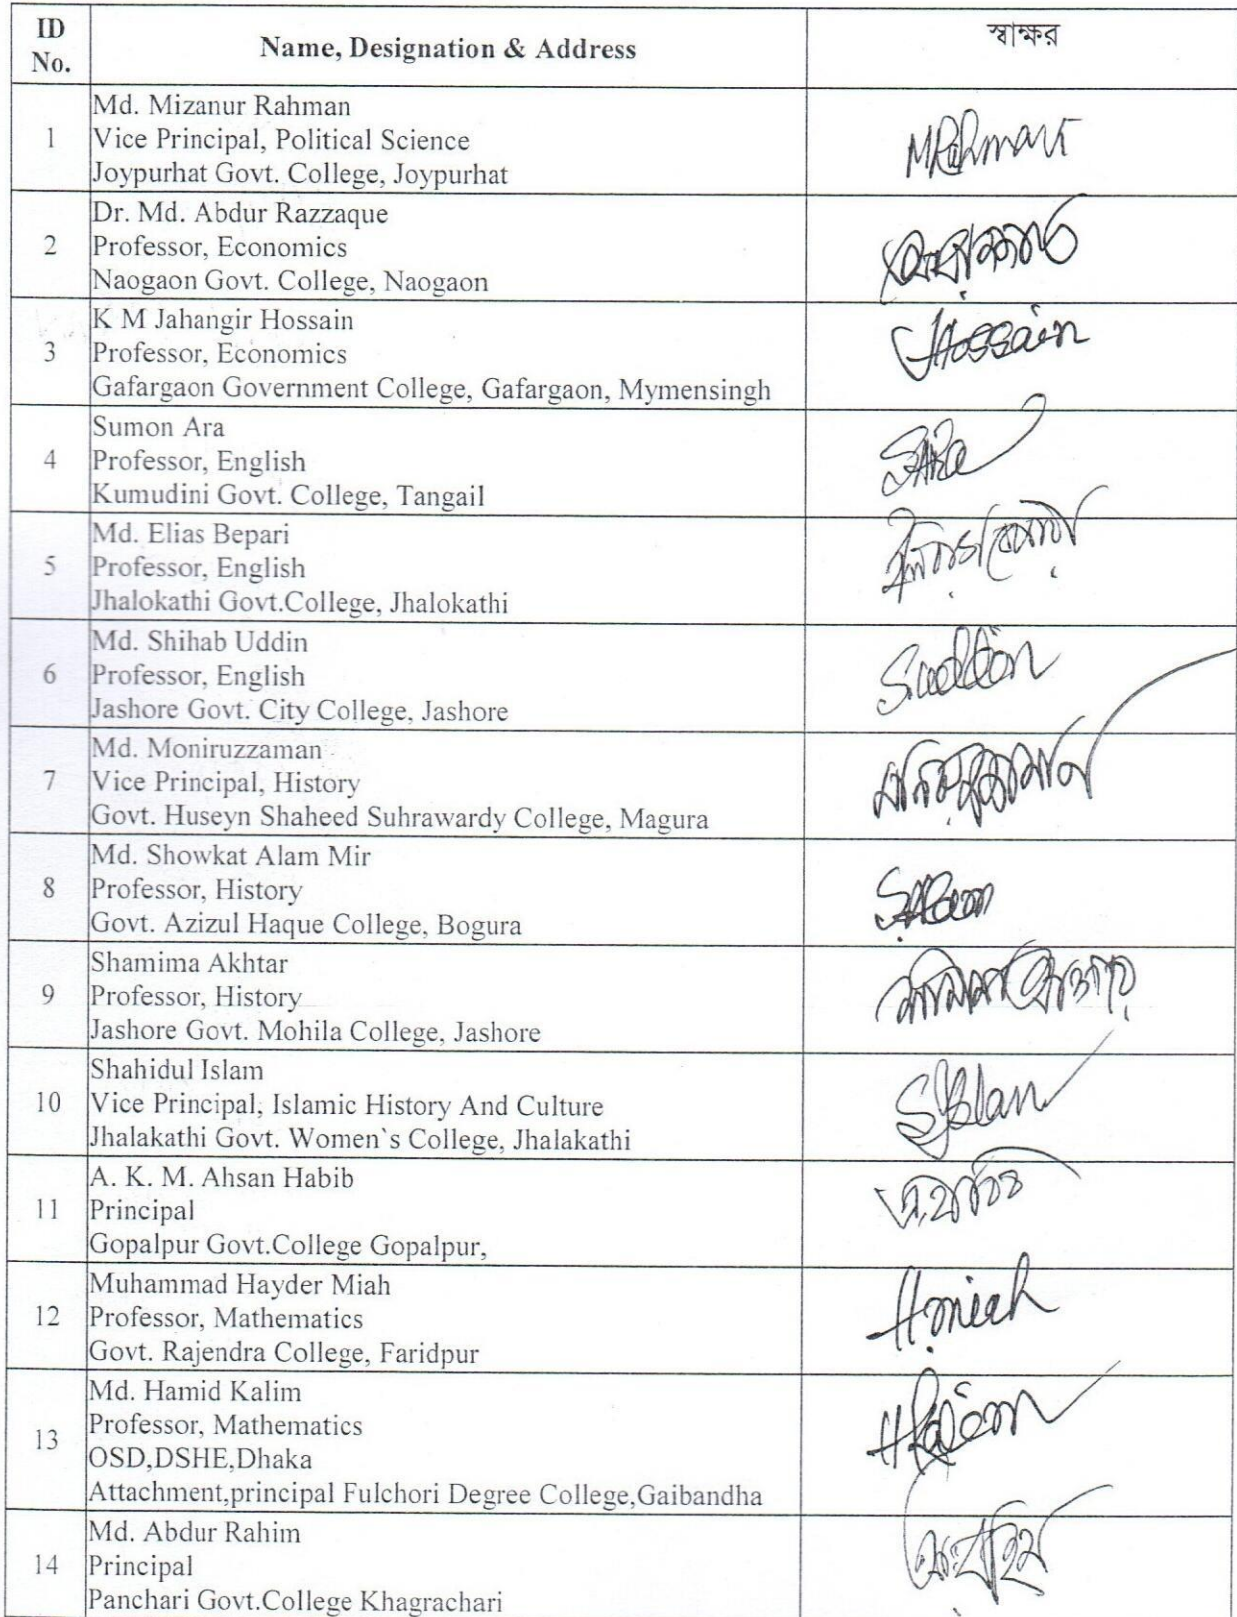 ID No. Name, Designation & Address স্বাক্ষর
Md. Mizanur Rahman
1 Vice Principal, Political Science MRahman
Joypurhat Govt. College, Joypurhat
Dr. Md. Abdur Razzaque
2 Professor, Economics
Naogaon Govt. College, Naogaon
K M Jahangir Hossain
3 Professor, Economics JHossain
Gafargaon Government College, Gafargaon, Mymensingh
Sumon Ara
4 Professor, English SAra
Kumudini Govt. College, Tangail
Md. Elias Bepari
5 Professor, English
Jhalokathi Govt.College, Jhalokathi
Md. Shihab Uddin
6 Professor, English S.uddin
Jashore Govt. City College, Jashore
Md. Moniruzzaman
7 Vice Principal, History
Govt. Huseyn Shaheed Suhrawardy College, Magura
Md. Showkat Alam Mir
8 Professor, History
Govt. Azizul Haque College, Bogura
Shamima Akhtar
9 Professor, History
Jashore Govt. Mohila College, Jashore
Shahidul Islam
10 Vice Principal, Islamic History And Culture
Jhalakathi Govt. Women`s College, Jhalakathi
A. K. M. Ahsan Habib
11 Principal
Gopalpur Govt.College Gopalpur,
Muhammad Hayder Miah
12 Professor, Mathematics Hmiah
Govt. Rajendra College, Faridpur
Md. Hamid Kalim
Professor, Mathematics
13 OSD,DSHE,Dhaka HKalim
Attachment,principal Fulchori Degree College,Gaibandha
Md. Abdur Rahim
14 Principal
Panchari Govt.College Khagrachari